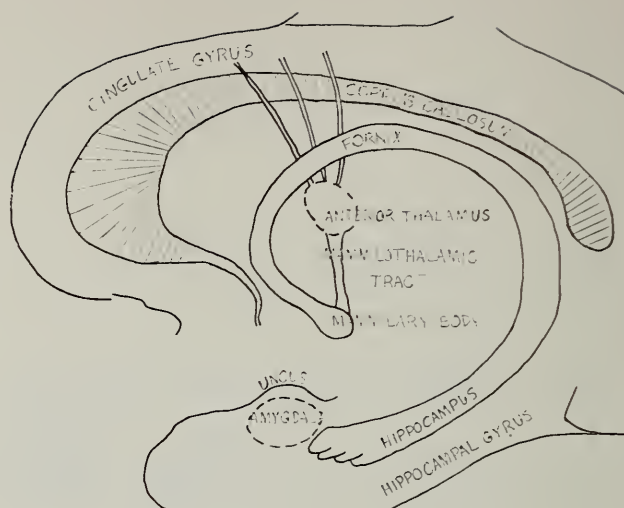 CINGULATE GYRUS
CORPUS CALLOSUM
FORNIX
ANTERIOR THALAMUS
MAMMILOTHALAMIC
TRACT
MAMMILARY BODY
UNCUS
AMYGDALA
HIPPOCAMPUS
HIPPOCAMPAL GYRUS